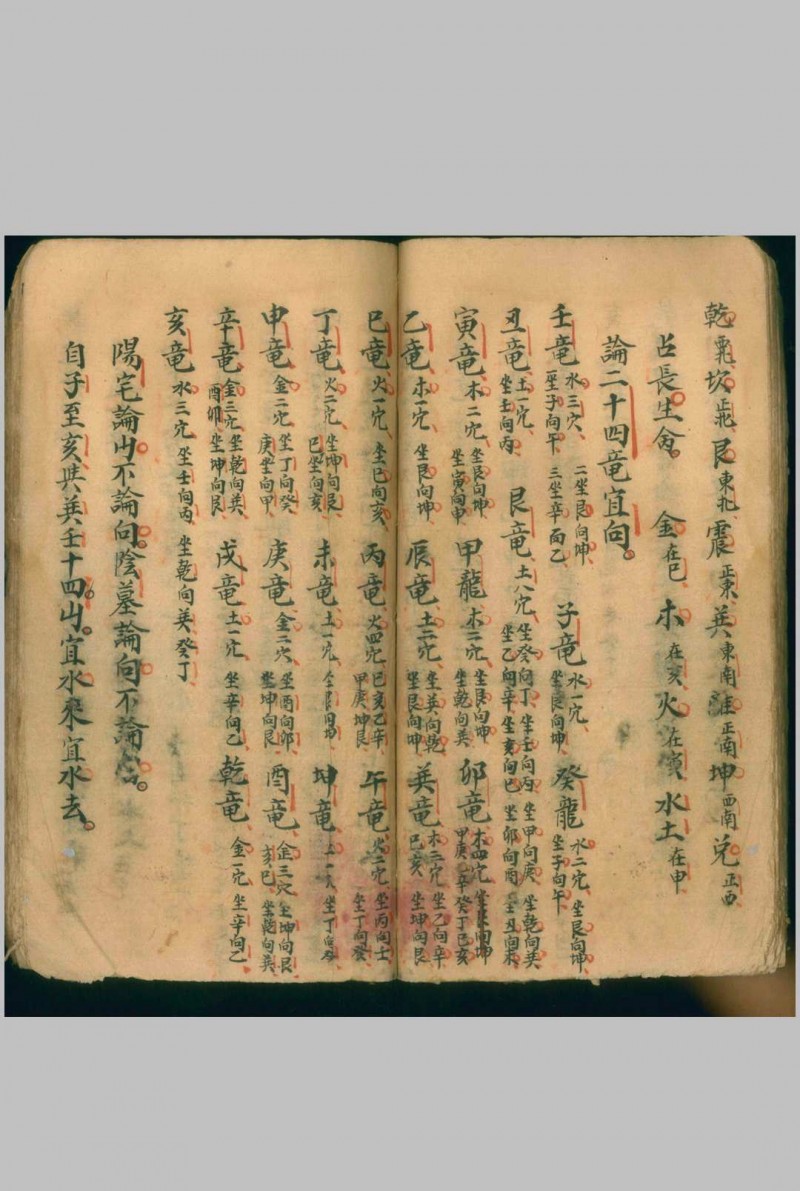 乾 坎正北 艮東北 震正東 巽東南 離正南 坤西南 兌正西
占長生舍 金在巳 木在亥 火在寅 水土在申
論二十四竜宜向
壬竜水三穴 坐子向午 二坐艮向坤 三坐辛向乙 子竜水一穴 坐艮向坤 癸龍水二穴 坐艮向坤 坐子向午
丑竜土一穴 坐壬向丙 艮竜土八穴 坐癸向丁 坐壬向丙 坐甲向庚 坐乾向巽 坐乙向辛 坐亥向巳 坐卯向酉 坐丑向未
寅竜木二穴 坐艮向坤 坐寅向申 甲龍木二穴 坐艮向坤 坐乾向巽 卯竜木四穴 坐艮向坤 甲庚乙辛癸丁巳亥
乙竜木一穴 坐艮向坤 辰竜土二穴 坐巽向乾 坐艮向坤 巽竜木三穴 坐乙向辛 巳亥 坐坤向艮
巳竜火一穴 坐巳向亥 丙竜火四穴 巳亥乙辛 甲庚坤艮 午竜火二穴 坐丙向壬 坐丁向癸
丁竜火二穴 坐坤向艮 巳坐向亥 未竜土一穴 坤竜 坐丁向癸
申竜金二穴 坐丁向癸 庚坐向甲 庚竜金二穴 坐酉向卯 坐坤向艮 酉竜金三穴 坐坤向艮 亥巳 坐乾向巽
辛竜金三穴 坐乾向巽 酉卯 坐坤向艮 戌竜土一穴 坐辛向乙 乾竜金一穴 坐辛向乙
亥竜水三穴 坐壬向丙 坐乾向巽 癸丁
陽宅論山不論向陰墓論向不論
自子至亥其巽壬十四山宜水來宜水去